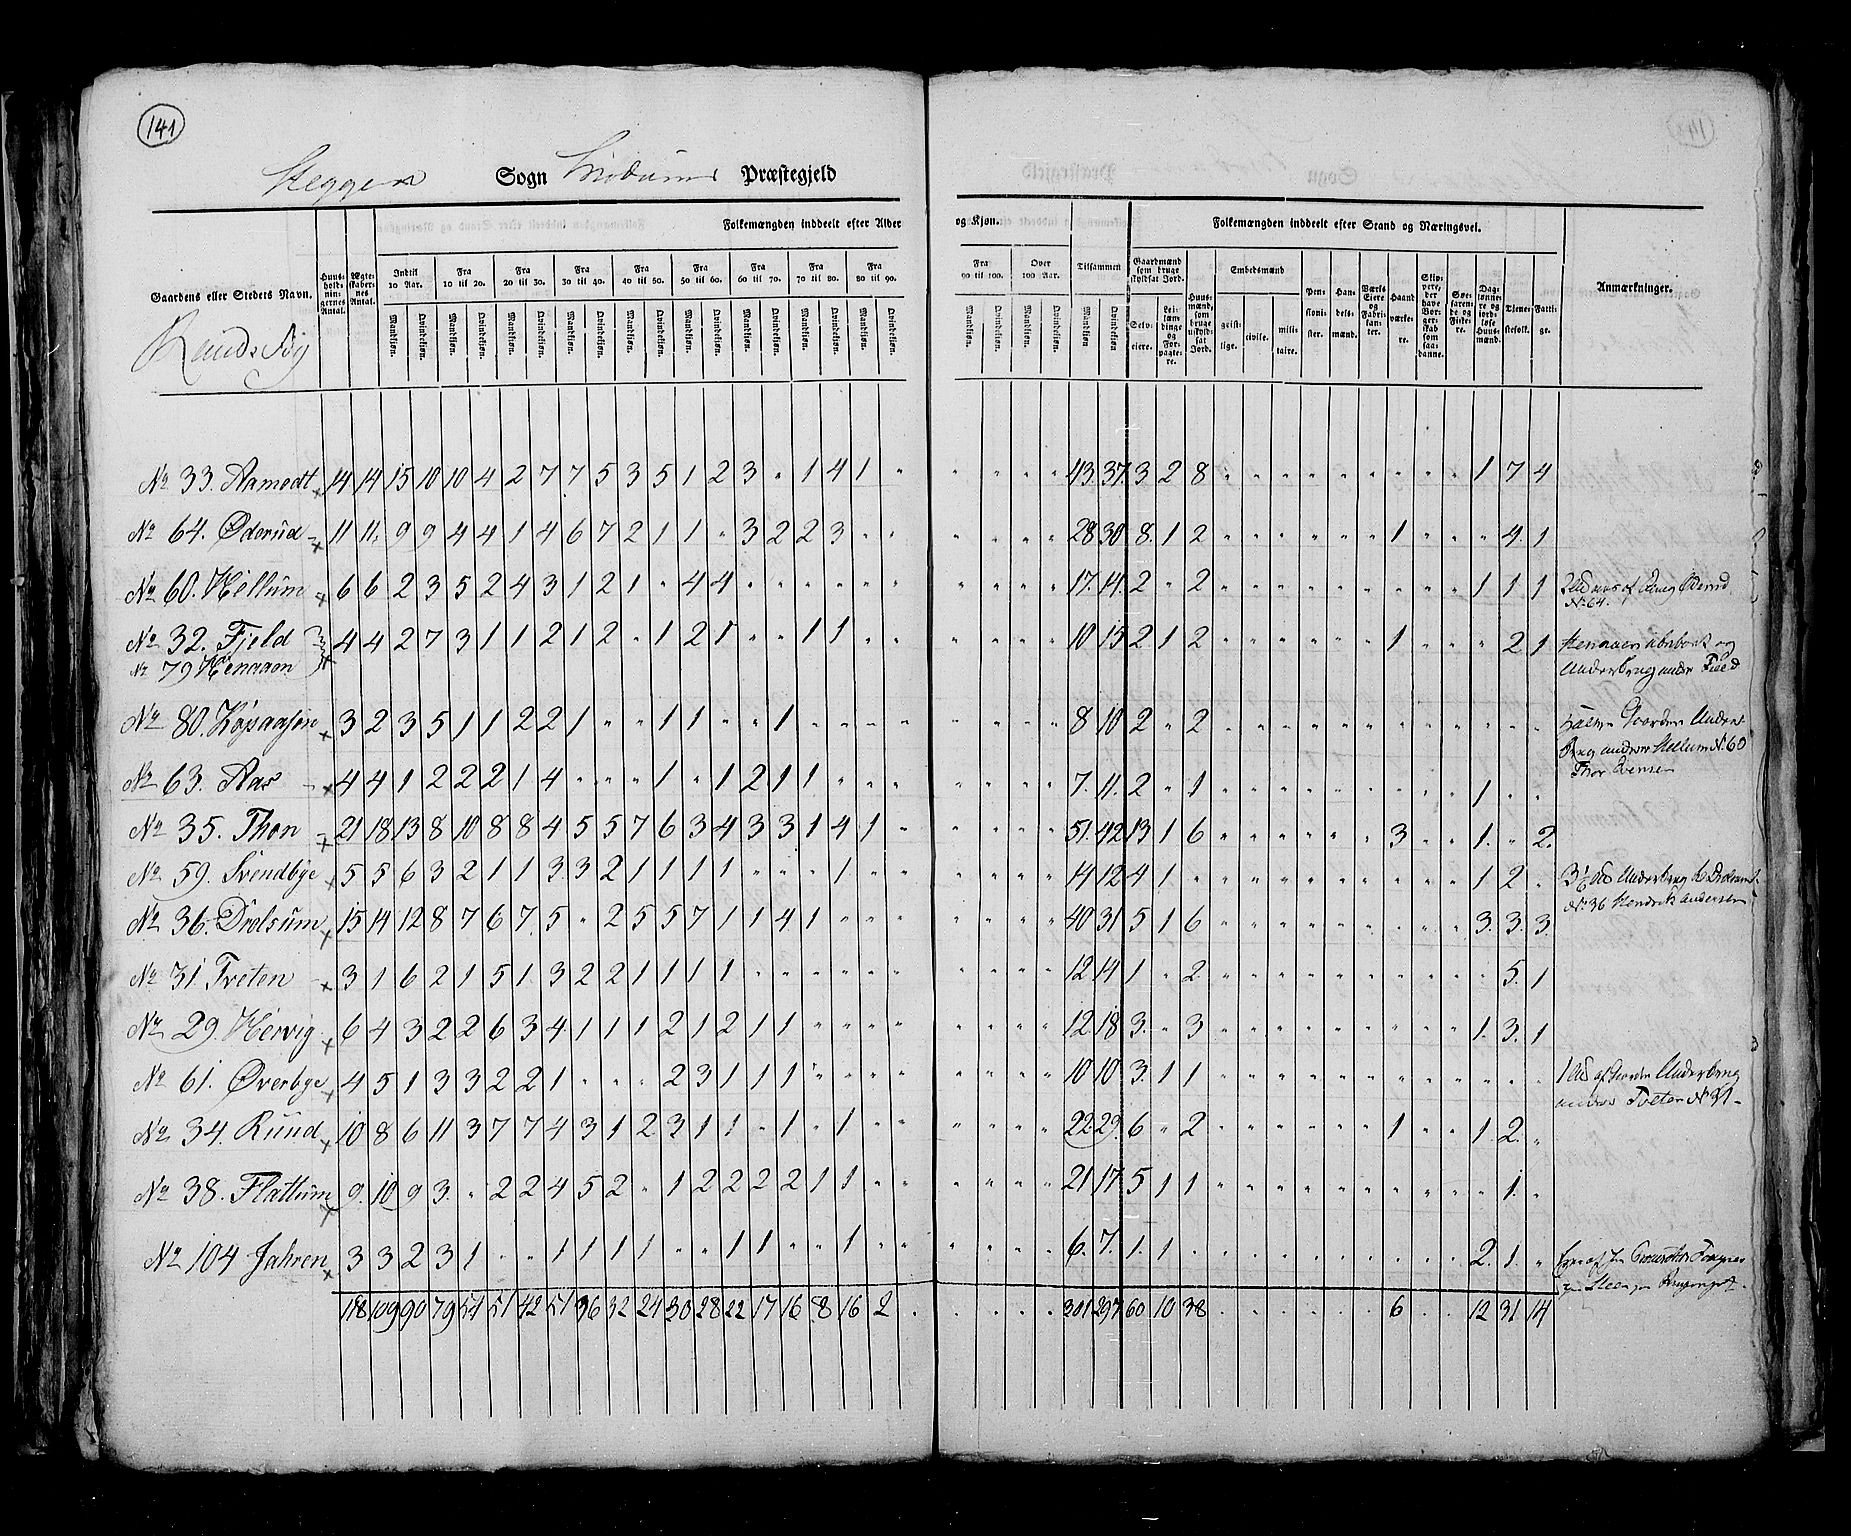 141
Heggens Sogn Modums Præstegjeld
Gaardens eller Stedets Navn.
Huus-holdnin-gernes Antal.
Ægte-skaber-nes Antal.
Folkemængden inddeelt efter Alder og Kjøn.
Indtil 10 Aar.
Fra 10 til 20.
Fra 20 til 30.
Fra 30 til 40.
Fra 40 til 50.
Fra 50 til 60.
Fra 60 til 70.
Fra 70 til 80.
Fra 80 til 90.
Fra 90 til 100.
Over 100 Aar.
Tilsammen
Mandkiøn. Qvindekiøn.
Folkemængden inddeelt efter Stand og Næringsvei.
Gaardmænd som bruge skyldsat Jord.
Selv-eiere.
Lei-læn-dinge og For-pagte-re.
Huus-mænd, som bruge uskyld-sat Jord.
Embedsmænd
geist-lige.
civile.
mili-taire.
Pen-sioni-ster.
Han-dels-mænd.
Værks Eiere og Fabri-kan-ter.
Haand-værke-re.
Skip-pere, der have Bor-ger-skab som saa-danne.
Søe-faren-de og Fiske-re.
Dag-lønne-re og jord-løse Huus-mænd.
Tjene-stefolk.
Fatti-ge.
Anmærkninger.
No 33. Aamodt 14 14 15 10 10 4 2 7 7 5 3 5 1 2 3 " 1 4 1 " " " " " 43. 37. 3 2 8 " " " " " " " " " 1 7 4
No 64. Øderud 11 11 9 9 4 4 1 4 6 7 2 1 1 " 3 2 2 3 " " " " " " 28 30 8. 1 2 " " " " " " 1 " " " 4. 1
No 60. Hellum 6 6 2 3 5 2 4 3 1 2 1 " 4 4 " " " " " " " " " " 17. 14. 2 " 2 " " " " " " " " " 1 1 1
No 64.
No 32. Fjeld 4 4 2 7 3 1 1 2 1 2 " 1 2 1 " " 1 1 " " " " " " 10 15 2 1 2 " " " " " " 1 " " " 2 1
No 79 Henaaen
Underbrug under Fjeld
No 80. Kopaasen 3 2 3 5 1 1 2 2 1 " " 1 1 " " 1 " " " " " " " " 8 10 2 " 2 " " " " " " " " " " " "
under Hellum No 60
No 63. Aas 4 4 1 2 2 2 1 4 " " " 1 " 1 2 1 1 " " " " " " " 7. 11. 2 " 1 " " " " " " " " " 1 " "
No 35. Thon 21 18 13 8 10 8 8 4 5 5 7 6 3 4 3 3 1 4 1 " " " " " 51. 42 13 1 6 " " " " " " 3 " " 1. " 2.
No 59. Svendbye 5 5 6 3 2 1 1 3 3 2 1 1 1 1 " " " 1 " " " " " " 14 12 4 1 " " " " " " " " " " 1 2 "
No 36 Hendrik Andersen
No 36. Drolsum 15 14 12 8 7 6 7 5 " 2 5 5 7 1 1 4 1 " " " " " " " 40 31 5 1 6 " " " " " " " " " 3. 3. 3.
No 31 Tveten 3 1 6 2 1 5 1 3 2 2 1 1 1 1 " " " " " " " " " " 12 14 1 " 2 " " " " " " " " " " 5. 1
No 29. Hervig 6 4 3 2 2 6 3 4 1 1 1 2 1 2 1 1 " " " " " " " " 12 18 3. " 3 " " " " " " " " " 1. 3. 1
No 61. Øverbye 4 5 1 3 3 2 2 1 " " " 2 3 1 1 1 " " " " " " " " 10 10 3. 1 1 " " " " " " " " " " " "
under Tveten No 31
No 34. Rund 10 8 6 11 3 7 7 4 3 1 2 3 1 1 " 1 " 1 " " " " " " 22 29. 6 " 2 " " " " " " 1 " " 1 2. "
No 38. Flattum 9. 10 9 3. " 2 2 4 5 2 " 1 2 2 2 2 1 1 " " " " " " 21 17 5 1 1 " " " " " " " " " " 1. "
No 104 Jahren 3 3 2 3 1 " " 1 1 1 1 " " 1 1 " " 1 " " " " " " 6. 7. 1. 1 " " " " " " " " " " 2. 1. "
118 109 90 79 54 51 42 51 36 32 24 30 28 22 17 16 8 16 2 " " " " " 301 297 60 10 38 " " " " " " 6 " " 12 31 14